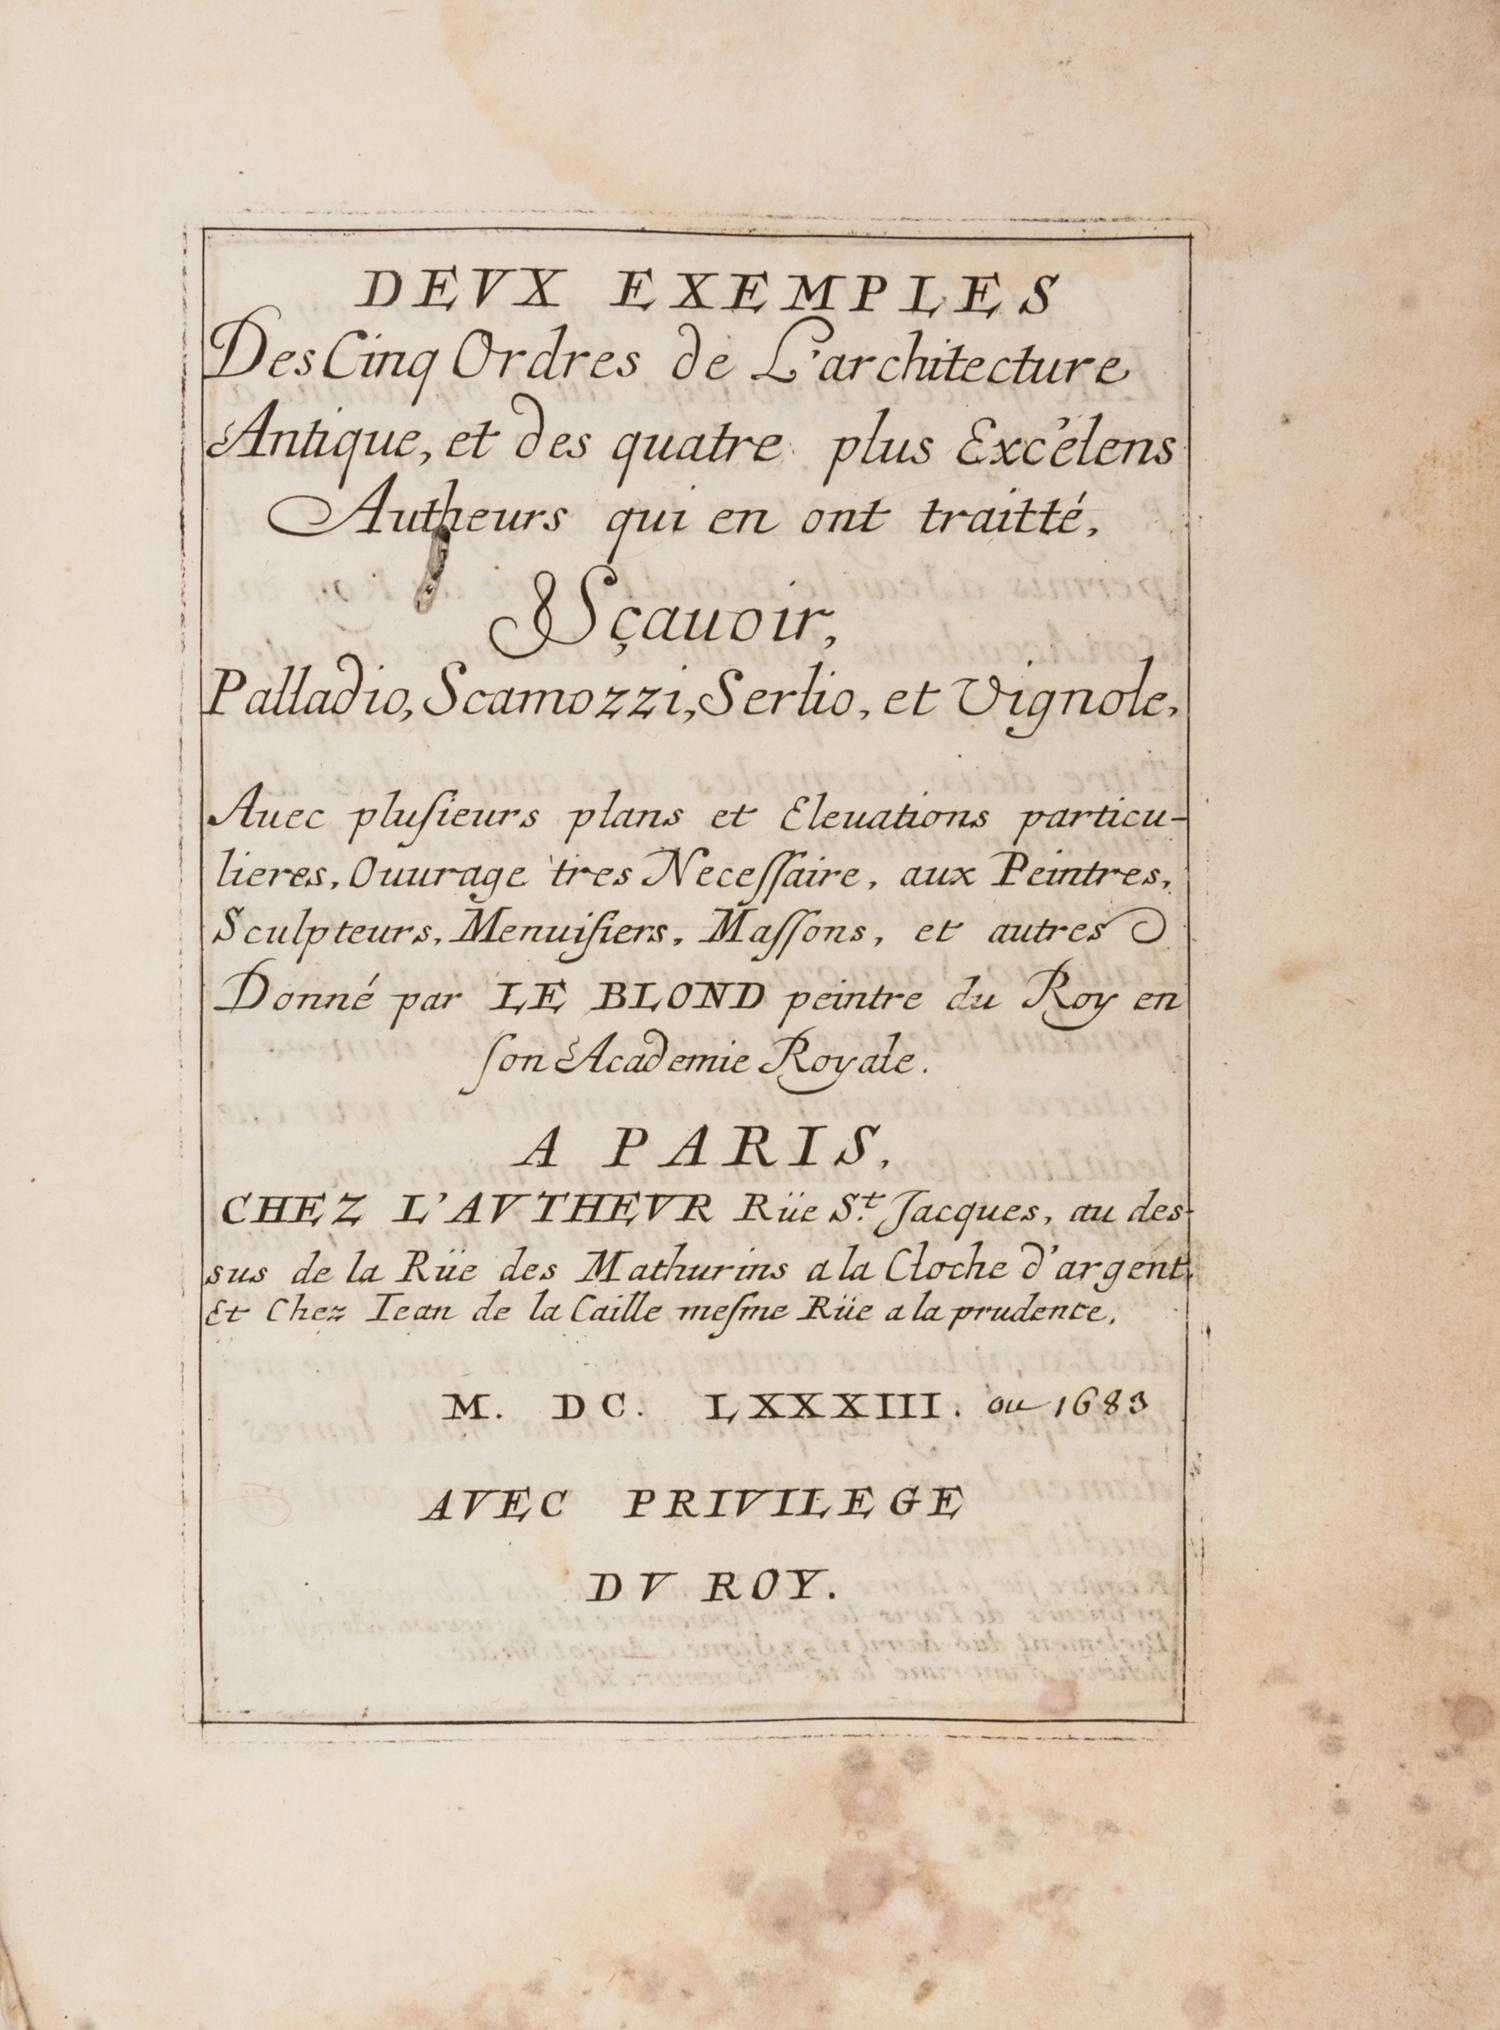 DEVX EXEMPLES
Des Cinq Ordres de L'architecture
Antique, et des quatre plus Excélens
Autheurs qui en ont traitté,
Sçauoir,
Palladio, Scamozzi, Serlio, et Vignole,
Auec pluſieurs plans et Eleuations particu-
lieres, Ouurage tres Neceſſaire, aux Peintres,
Sculpteurs, Menuiſiers, Maſſons, et autres
Donné par LE BLOND peintre du Roy en
ſon Academie Royale.
A PARIS,
CHEZ L'AVTHEVR Rüe S.t Jacques, au des-
sus de la Rüe des Mathurins a la Cloche d'argent,
Et Chez Iean de la Caille meſme Rüe a la prudence,
M. DC. LXXXIII. ou 1683
AVEC PRIVILEGE
DV ROY.